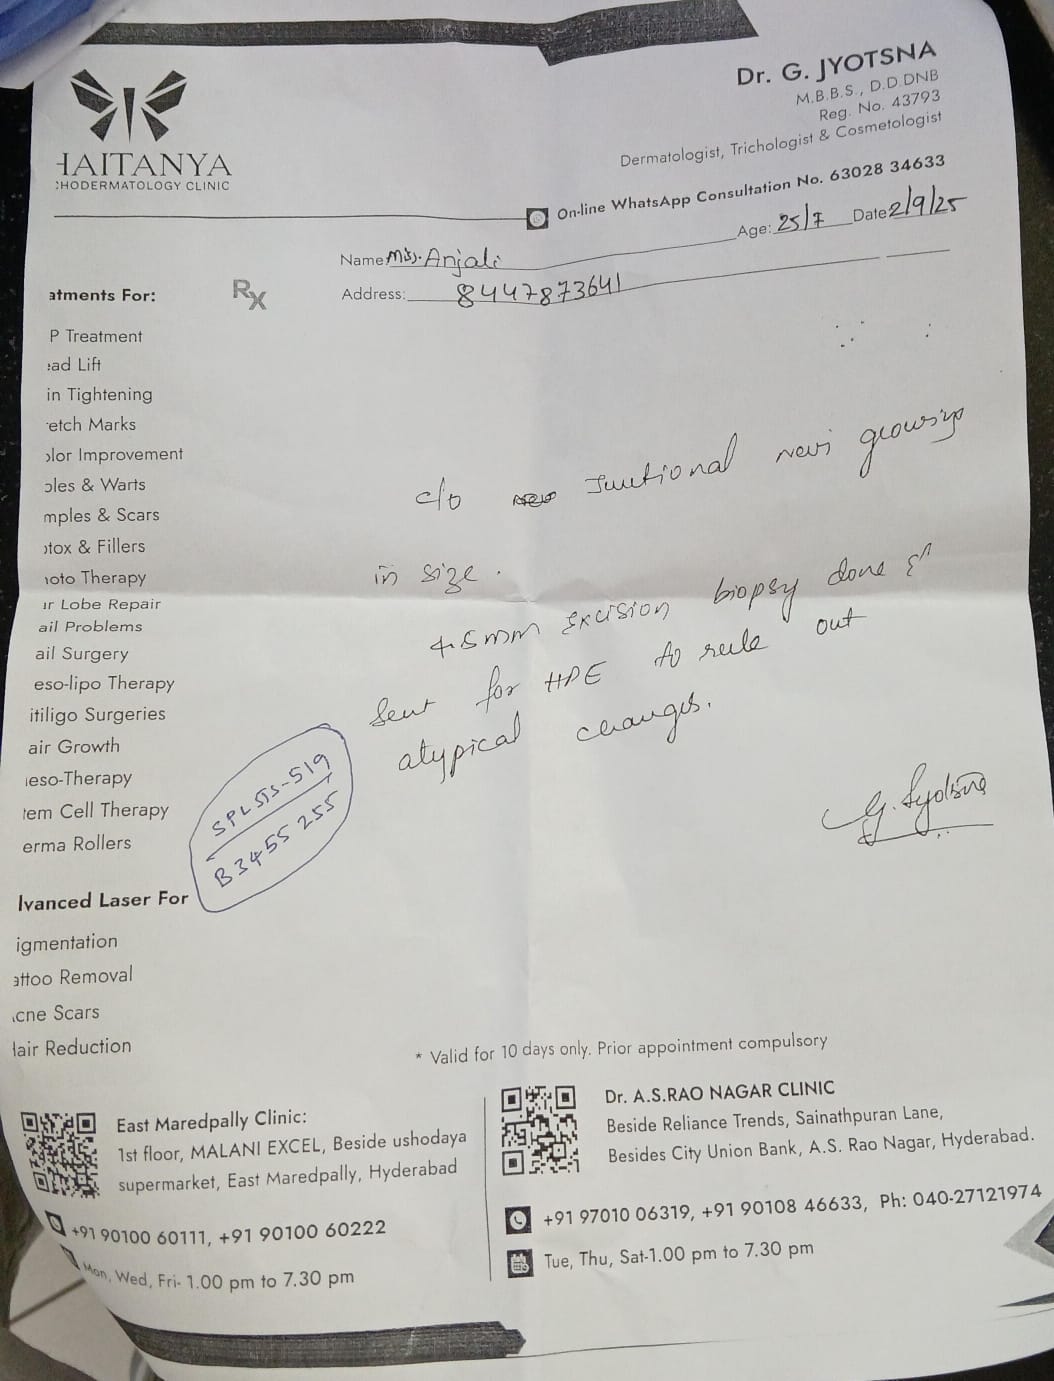 Dr. G. JYOTSNA
M.B.B.S., D.D.DNB
Reg. No. 43793
Dermatologist, Trichologist & Cosmetologist
HAITANYA
CHODERMATOLOGY CLINIC
On-line WhatsApp Consultation No. 63028 34633
Name Miss. Anjali Age: 25/F Date 2/9/25
Address: 8447873641
Rx
atments For:
P Treatment
ead Lift
in Tightening
etch Marks
olor Improvement
oles & Warts
mples & Scars
otox & Fillers
hoto Therapy
ar Lobe Repair
ail Problems
ail Surgery
eso-lipo Therapy
itiligo Surgeries
air Growth
eso-Therapy
tem Cell Therapy
erma Rollers
c/o Junctional nevi growing
in size.
4.5mm Excision biopsy done &
Sent for HPE to rule out
atypical changes.
G. Jyotsna
SPL STS-519
B3455255
lvanced Laser For
igmentation
attoo Removal
cne Scars
Hair Reduction
* Valid for 10 days only. Prior appointment compulsory
East Maredpally Clinic:
1st floor, MALANI EXCEL, Beside ushodaya
supermarket, East Maredpally, Hyderabad
+91 90100 60111, +91 90100 60222
Mon, Wed, Fri- 1.00 pm to 7.30 pm
Dr. A.S.RAO NAGAR CLINIC
Beside Reliance Trends, Sainathpuran Lane,
Besides City Union Bank, A.S. Rao Nagar, Hyderabad.
+91 97010 06319, +91 90108 46633, Ph: 040-27121974
Tue, Thu, Sat-1.00 pm to 7.30 pm